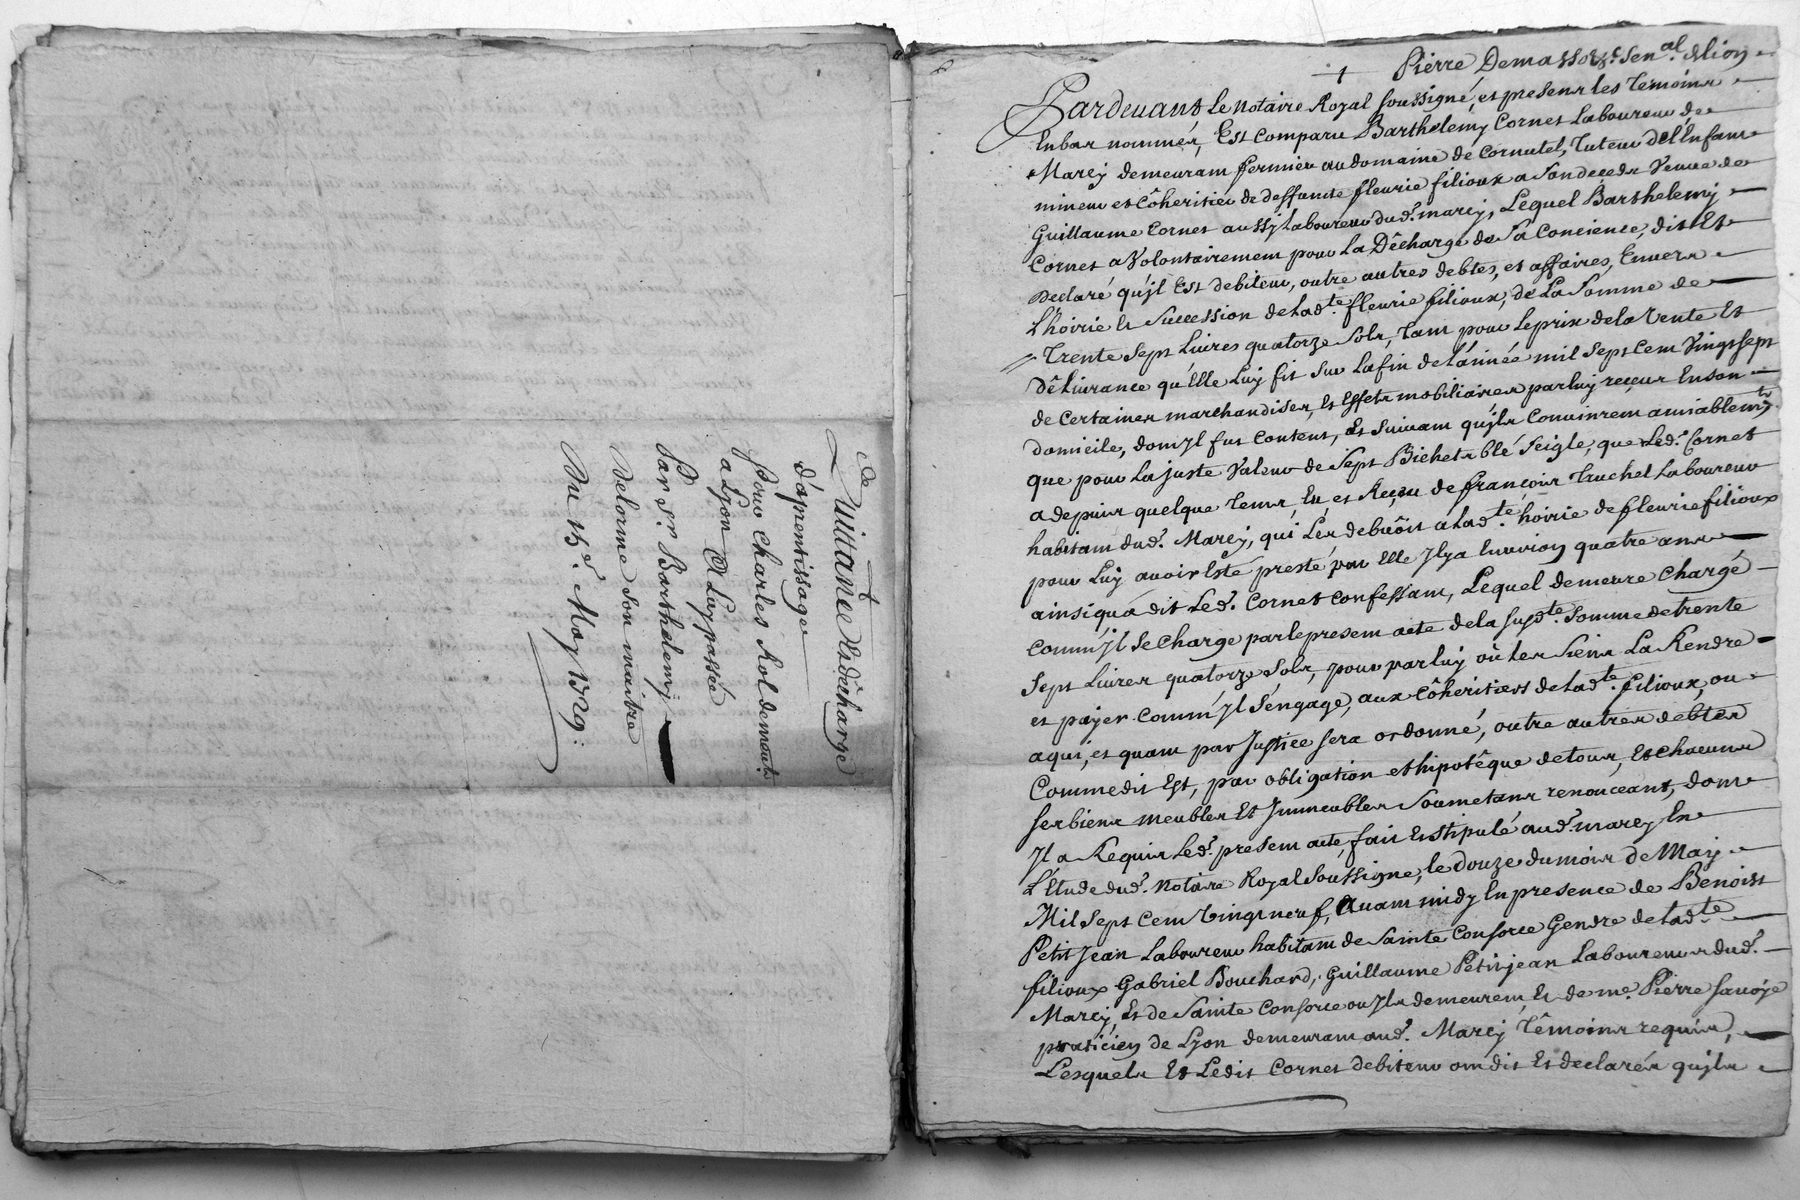 Quittance Et decharge
d'aprentissage
pour Charles Rol demeurt.
a Lyon A Luy passée
Par Sr. Barthelemy
Delorme son maitre
Du 15e. May 1729.
Pardevant le Notaire Royal soussigné, et presens les Temoins
Enbas nommés, Est comparu Barthelemy Cornet Laboureur de
Marcy demeurant fermier au domaine de Cornutel, Tuteur del'Enfant
mineur et Côheritier de deffuncte fleurie filioux a Son deceds Veuve de
Guillaume Cornet aussy Laboureur dud. marcy, Lequel Barthelemy
Cornet a Volontairement pour La Décharge de Sa Concience, dit Et
Declaré qu'jl Est debiteur, outre autres debtes, et affaires, Envers
L'hoirie Et Succession de Ladte. fleurie filioux, de La Somme de
Trente Sept Livres quatorze Sols, Tant pour Leprix dela Vente Et
Délivrance qu'Elle Luy fit Sur Lafin de L'année mil Sept Cent Vingt sept
de Certaines marchandises, Et Effets mobiliaires par luy reçeus En son
domicile, dont jl fut Content, Et Suivant qu'jls Convinrent amiablemt.
que pour La juste Valeur de Sept Bichets blé Seigle, que Led. Cornet
a depuis quelque Tems, Eu et Reçeu de françois Truchet Laboureur
habitant dud. Marcy, qui Les debvôit a Ladte. hoirie de fleurie filioux
pour Luy avoir Esté presté par Elle Jlya Environ quatre ans
ainsiqu'a dit Led. Cornet Confessant, Lequel demeure Chargé
Comm'jl Se Charge par le present acte de la susdte. Somme de trente
Sept Livres quatorze Sols, pour par luy où les Siens La Rendre
et payer Comm'jl S'engage, aux Côheritiers de Ladte. filioux, ou
a qui, et quant par Justice sera ordonné, outre autres debtes
Comme dit Est, par obligation et hipotêque de tous, Et chacuns
ses biens meubles Et Jmmeubles Soumetans renonceant, dont
Jl a Requis Led. present acte, fait Et Stipulé aud. marcy En
L'Etude dud. Notaire Royal Soussigné, le douze du mois de May
Mil Sept Cent Vingt neuf, Avant midy En presence de Benoist
Petit Jean Laboureur habitant de Sainte Consorce Gendre de Ladte.
filioux Gabriel Bouchard, Guillaume Petitjean Laboureurs dud.
Marcy, Et de Sainte Consorce ou Jls demeurent Et de me. Pierre Savoye
praticien de Lyon demeurant aud. Marcy Têmoins requis,
Lesquels Et Ledit Cornet debiteur ont dit Et declarés qu'jls